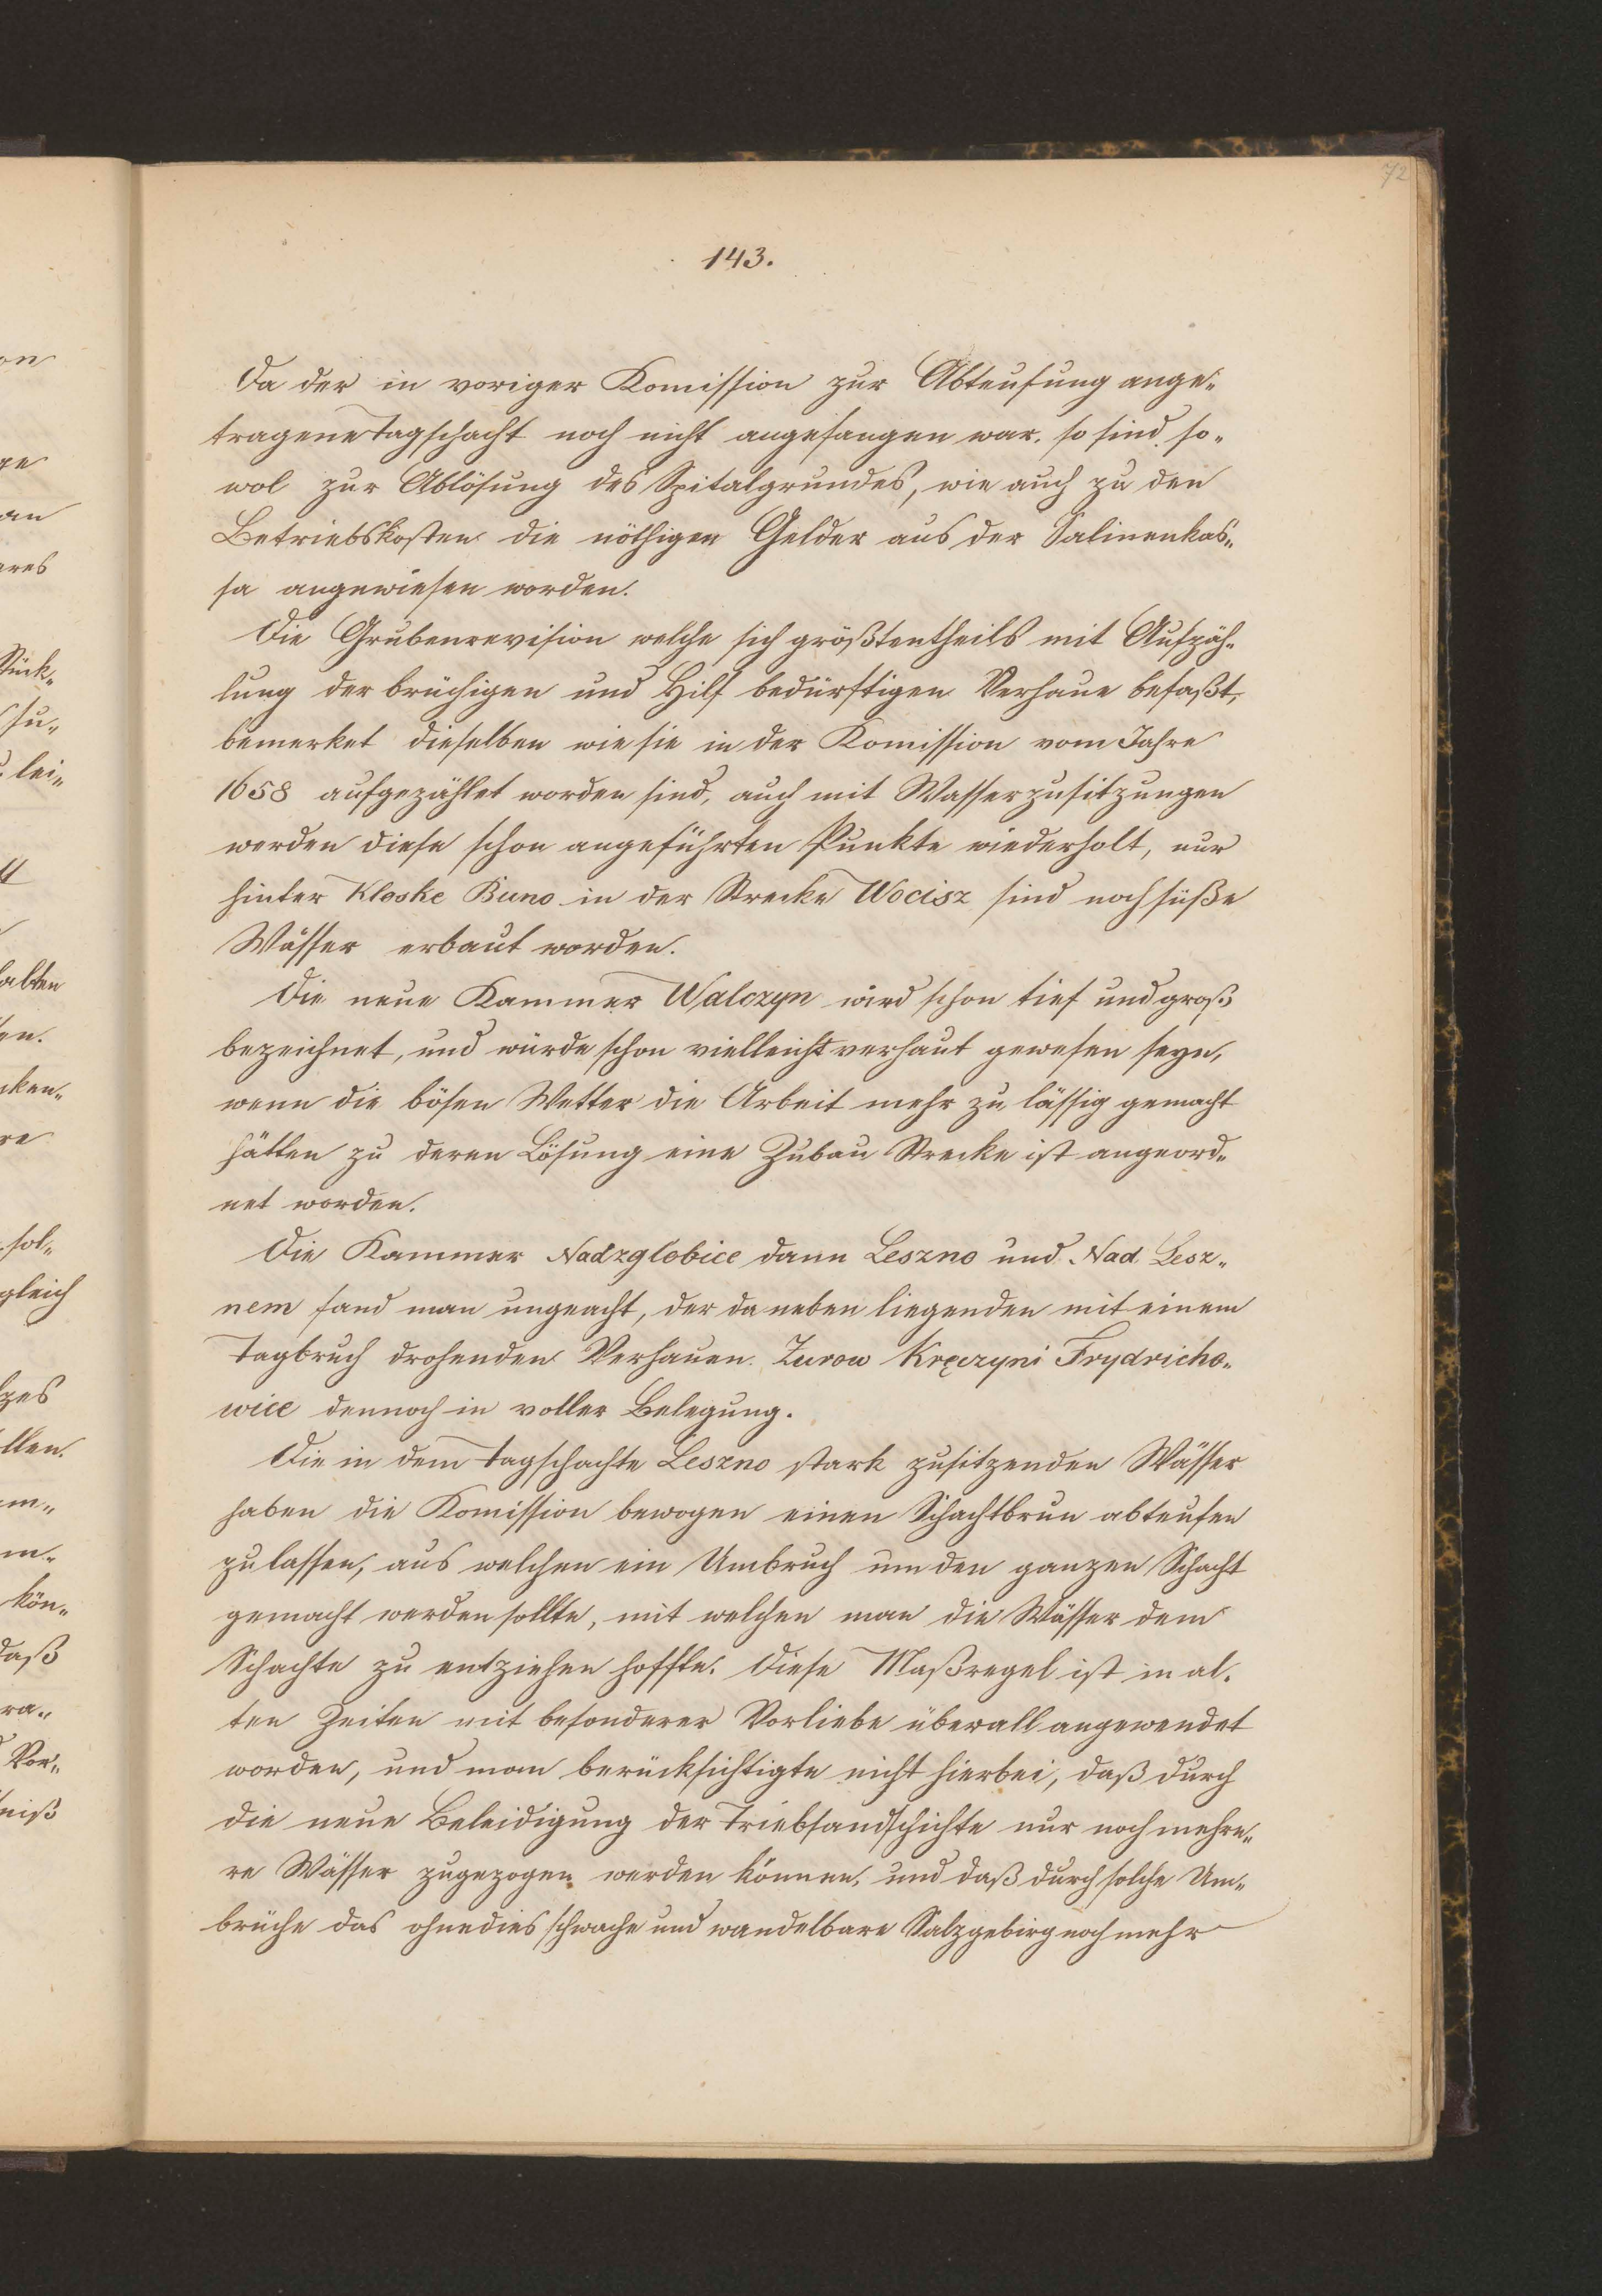 72
143.
Da der in voriger Komission zur Abteufung ange„
tragene Tagschacht noch nicht angefangen war, so sind so„
wol zur Ablösung des Spitalgrundes, wie auch zu den
Betriebskosten die nöthigen Gelder aus der Salinenkas„
sa angewiesen worden.
Die Grubenrevision welche sich größtentheils mit Aufzäh„
lung der brüchigen und Hilf bedürftigen Verhaue befaßt,
bemerket dieselben wie sie in der Komission vom Jahre
1658 aufgezählet worden sind, auch mit Wasserzusitzungen
werden diese schon angeführten Punkte wiederholt, nur
hinter Kloske Buno in der Strecke Wocisz sind noch süße
Wässer erbaut worden.
Die neue Kammer Walczyn wird schon tief und groß
bezeichnet, und würde schon vielleicht verhaut gewesen seyn,
wenn die bösen Wetter die Arbeit mehr zu lässig gemacht
hätten zu deren Lösung eine Zubau Strecke ist angeord„
net worden.
Die Kammer Nadzglobice dann Leszno und Nad Lesz„
nem fand man ungeacht, der daneben liegenden mit einem
Tagbruch drohenden Verhauen. Zurow Kręczyni Frydricho„
wice dennoch in voller Belegung.
Die in dem Tagschachte Leszno stark zusitzenden Wässer
haben die Komission bewogen einen Schachtbrun abteufen
zu lassen, aus welchen ein Umbruch um den ganzen Schacht
gemacht werden sollte, mit welchen man die Wässer dem
Schachte zu entziehen hoffte. Diese Maßregel ist in al„
ten Zeiten mit besonderer Vorliebe überall angewendet
worden, und man berücksichtigte nicht hierbei, daß durch
die neue Beleidigung der Triebsandschichte nur noch mehre„
re Wässer zugezogen werden können, und daß durch solche Um„
brüche das ohnedies schwache und wandelbare Salzgebirg noch mehr